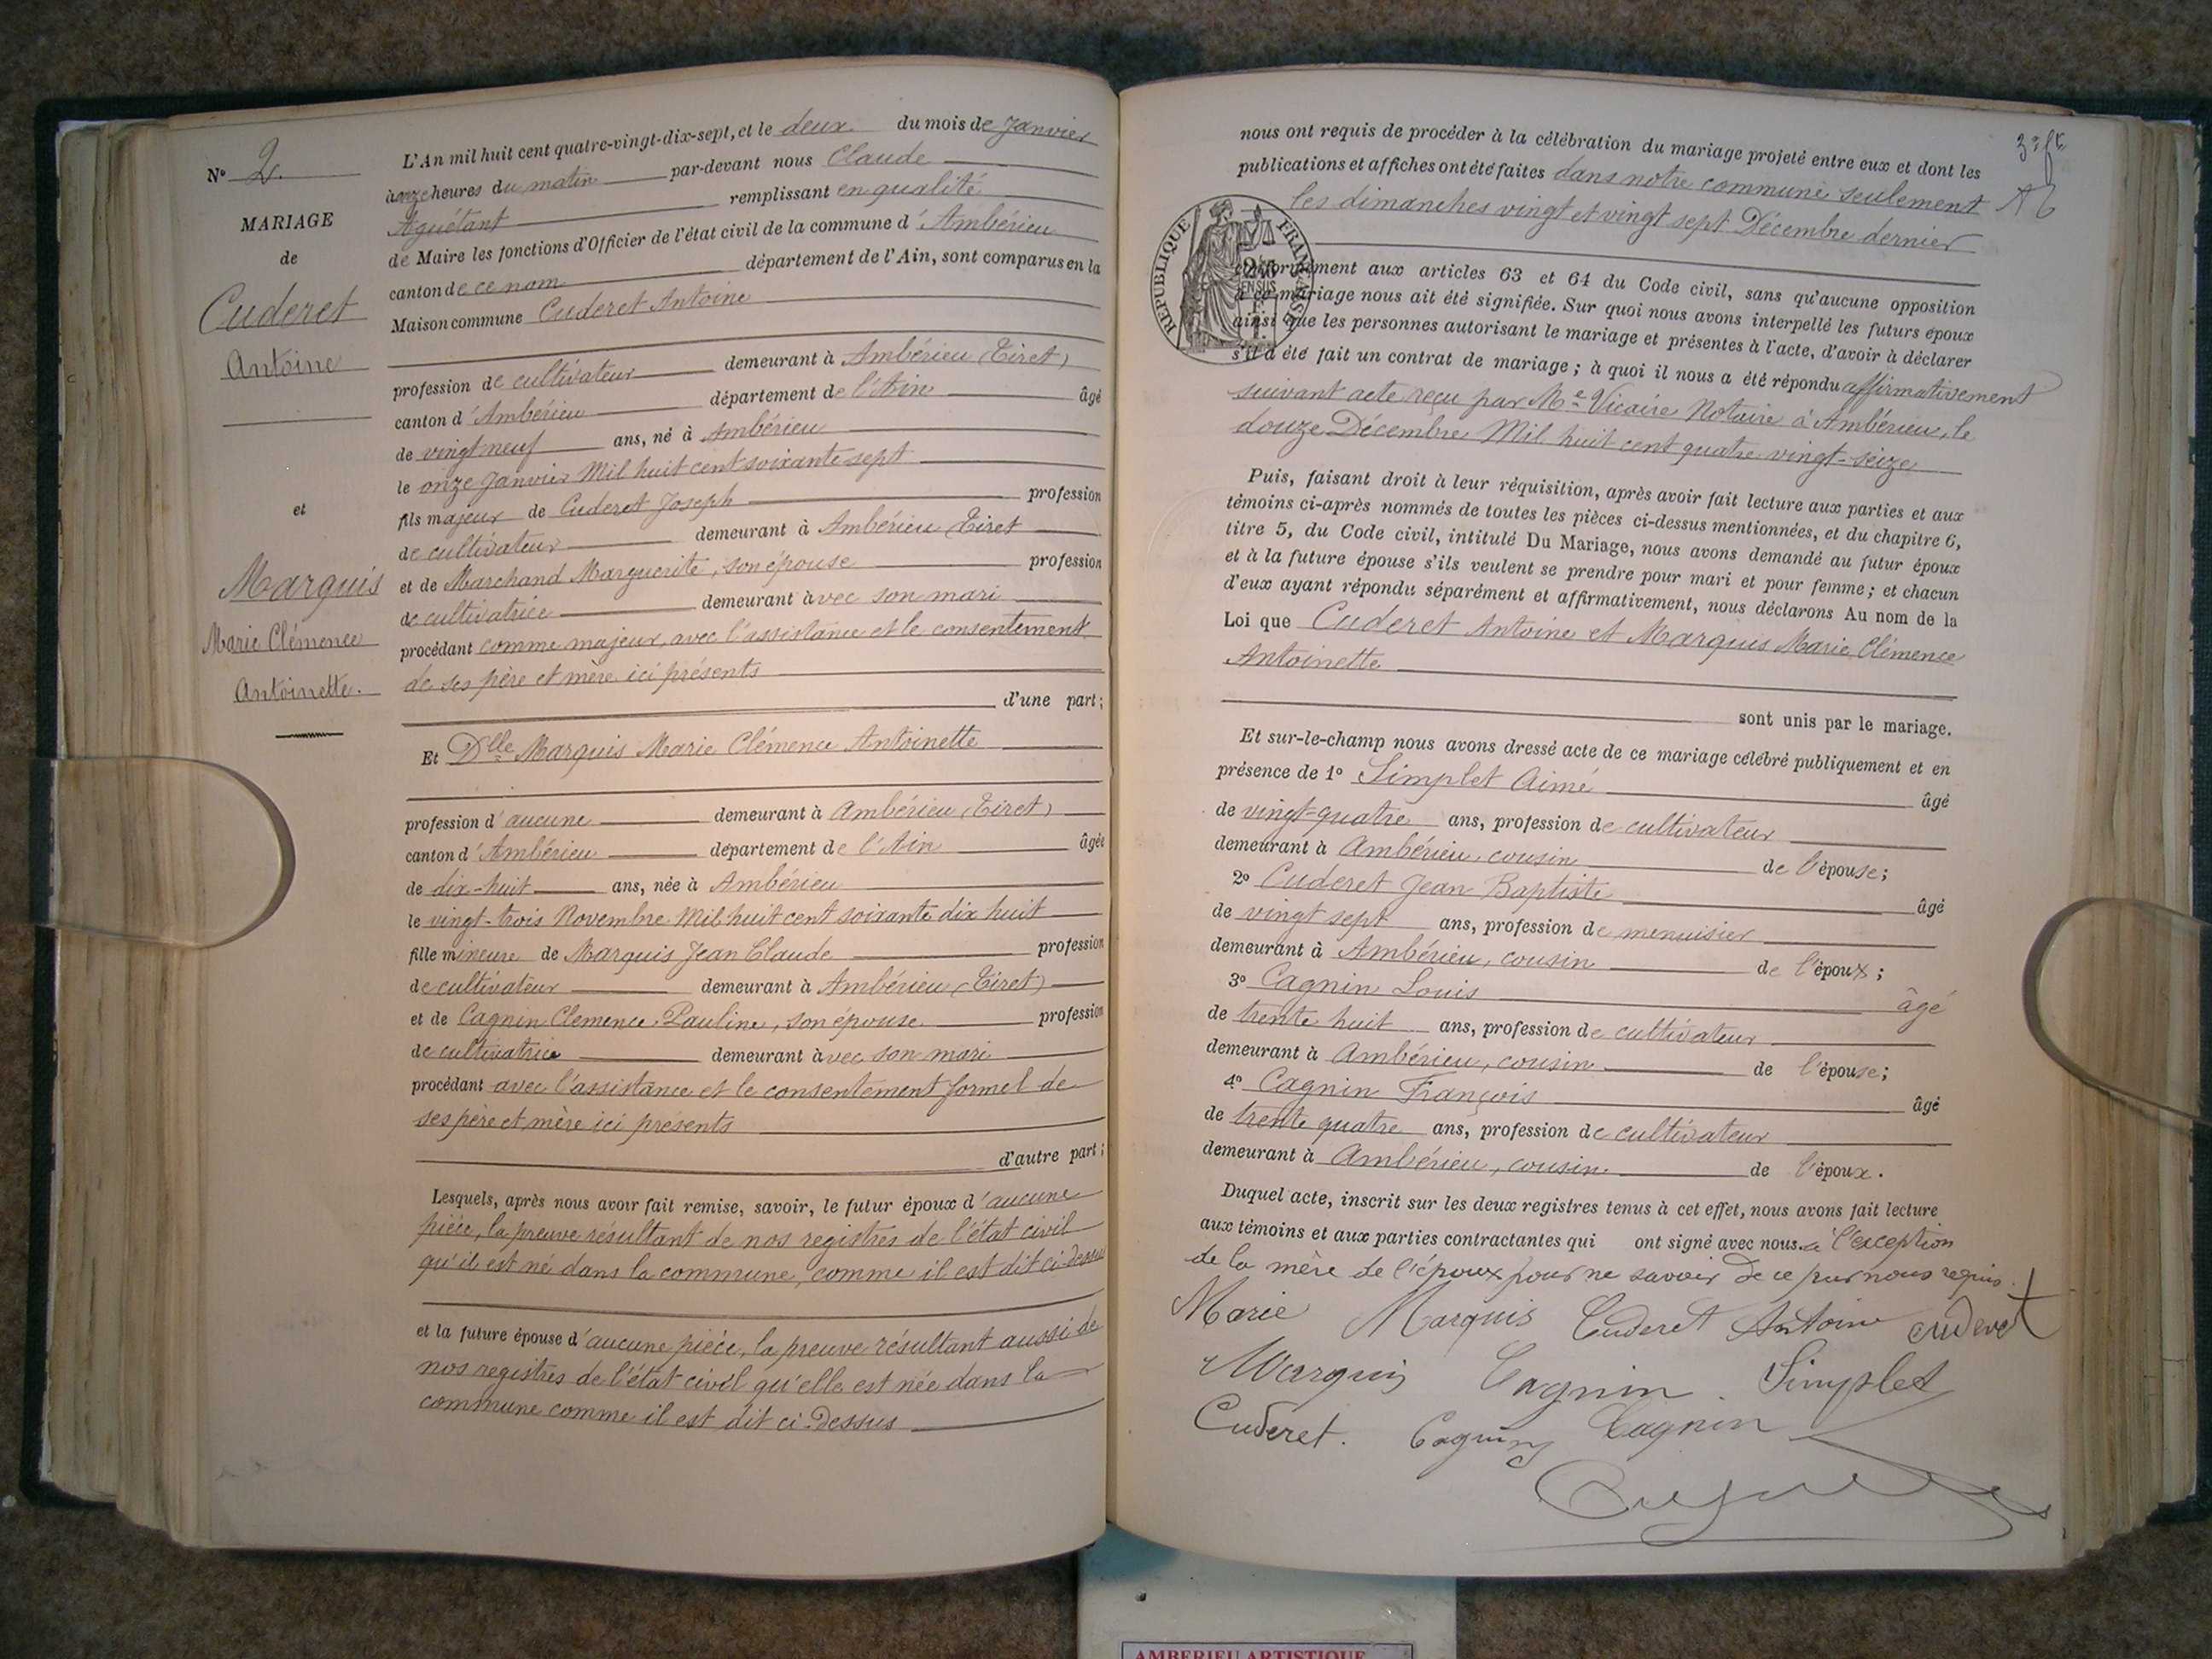 N° 2.
MARIAGE
de
Cuderet
Antoine
et
Marquis
Marie Clémence
Antoinette.
L'An mil huit cent quatre-vingt-dix-sept, et le deux du mois de Janvier
à onze heures du matin par-devant nous Claude
Aguétant remplissant en qualité
de Maire les fonctions d'Officier de l'état civil de la commune d'Ambérieu
canton de ce nom département de l'Ain, sont comparus en la
Maison commune Cuderet Antoine
profession de cultivateur demeurant à Ambérieu (Tiret)
canton d'Ambérieu département de l'Ain âgé
de vingt neuf ans, né à Ambérieu
le onze Janvier Mil huit cent soixante sept
fils majeur de Cuderet Joseph profession
de cultivateur demeurant à Ambérieu Tiret
et de Marchand Marguerite, son épouse profession
de cultivatrice demeurant avec son mari
procédant comme majeur, avec l'assistance et le consentement
de ses père et mère ici présents
d'une part;
Et Dlle Marquis Marie Clémence Antoinette
profession d'aucune demeurant à Ambérieu (Tiret)
canton d'Ambérieu département de l'Ain âgée
de dix-huit ans, née à Ambérieu
le vingt-trois Novembre Mil huit cent soixante dix huit
fille mineure de Marquis Jean Claude profession
de cultivateur demeurant à Ambérieu (Tiret)
et de Cagnin Clemence Pauline, son épouse profession
de cultivatrice demeurant avec son mari
procédant avec l'assistance et le consentement formel de
ses père et mère ici présents
d'autre part;
Lesquels, après nous avoir fait remise, savoir, le futur époux d'aucune
pièce, la preuve résultant de nos registres de l'état civil
qu'il est né dans la commune, comme il est dit ci-dessus
et la future épouse d'aucune pièce, la preuve résultant aussi de
nos registres de l'état-civil qu'elle est née dans la
commune comme il est dit ci-dessus
nous ont requis de procéder à la célébration du mariage projeté entre eux et dont les
publications et affiches ont été faites dans notre commune seulement
les dimanches vingt et vingt sept Décembre dernier
RÉPUBLIQUE FRANÇAISE
conformément aux articles 63 et 64 du Code civil, sans qu'aucune opposition
à ce mariage nous ait été signifiée. Sur quoi nous avons interpellé les futurs époux
ainsi que les personnes autorisant le mariage et présentes à l'acte, d'avoir à déclarer
s'il a été fait un contrat de mariage; à quoi il nous a été répondu affirmativement
suivant acte reçu par Me Vicaire Notaire à Ambérieu, le
douze Décembre Mil huit cent quatre vingt-seize
Puis, faisant droit à leur réquisition, après avoir fait lecture aux parties et aux
témoins ci-après nommés de toutes les pièces ci-dessus mentionnées, et du chapitre 6,
titre 5, du Code civil, intitulé Du Mariage, nous avons demandé au futur époux
et à la future épouse s'ils veulent se prendre pour mari et pour femme; et chacun
d'eux ayant répondu séparément et affirmativement, nous déclarons Au nom de la
Loi que Cuderet Antoine et Marquis Marie Clémence
Antoinette
sont unis par le mariage.
Et sur-le-champ nous avons dressé acte de ce mariage célébré publiquement et en
présence de 1° Simplet Aimé âgé
de vingt-quatre ans, profession de cultivateur
demeurant à Ambérieu, cousin de l'épouse;
2° Cuderet Jean Baptiste âgé
de vingt sept ans, profession de menuisier
demeurant à Ambérieu, cousin de l'époux;
3° Cagnin Louis âgé
de trente huit ans, profession de cultivateur
demeurant à Ambérieu, cousin de l'épouse;
4° Cagnin François âgé
de trente quatre ans, profession de cultivateur
demeurant à Ambérieu, cousin de l'époux.
Duquel acte, inscrit sur les deux registres tenus à cet effet, nous avons fait lecture
aux témoins et aux parties contractantes qui ont signé avec nous à l'exception
de la mère de l'époux pour ne savoir de ce par nous requis.
Marie Marquis Cuderet Antoine Cuderet
Marquis Cagnin. Simplet
Cuderet. Cagnin Cagnin
AMBERIEU ARTISTIQUE